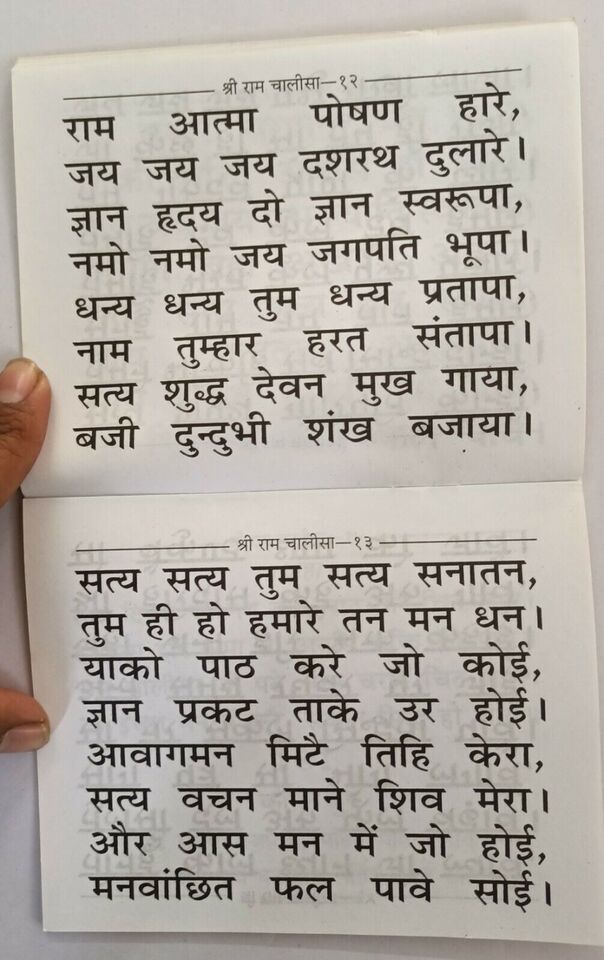 श्री राम चालीसा—१२
राम आत्मा पोषण हारे,
जय जय जय दशरथ दुलारे।
ज्ञान हृदय दो ज्ञान स्वरूपा,
नमो नमो जय जगपति भूपा।
धन्य धन्य तुम धन्य प्रतापा,
नाम तुम्हार हरत संतापा।
सत्य शुद्ध देवन मुख गाया,
बजी दुन्दुभी शंख बजाया।
श्री राम चालीसा—१३
सत्य सत्य तुम सत्य सनातन,
तुम ही हो हमारे तन मन धन।
याको पाठ करे जो कोई,
ज्ञान प्रकट ताके उर होई।
आवागमन मिटै तिहि केरा,
सत्य वचन माने शिव मेरा।
और आस मन में जो होई,
मनवांछित फल पावे सोई।